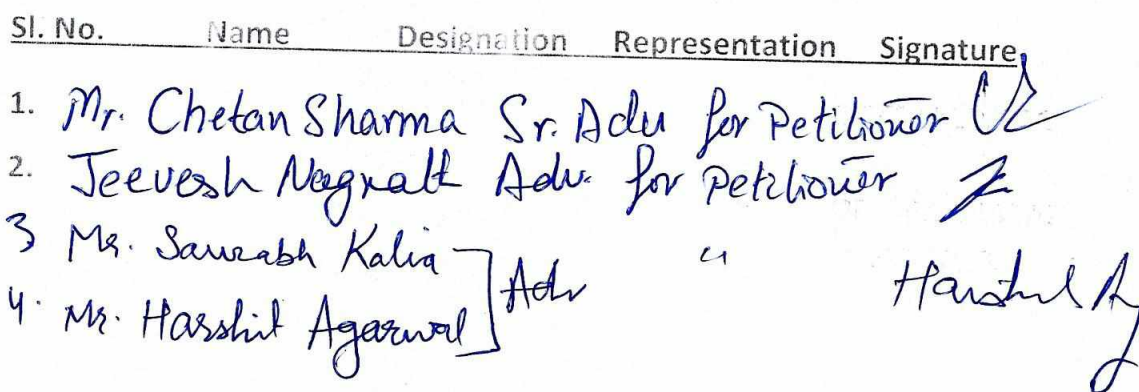 Sl. No. Name Designation Representation Signature
1. Mr. Chetan Sharma Sr. Adv for Petitioner
2. Jeevesh Nagrath Adv. for Petitioner
3 Mr. Saurabh Kalia ] Adv "
4. Mr. Harshit Agarwal